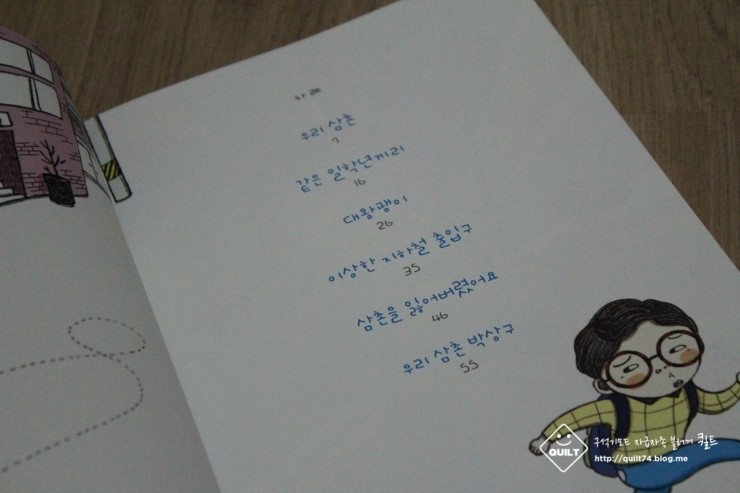 차례
우리 삼촌
7
같은 일학년끼리
16
대왕팽이
26
이상한 지하철 출입구
35
삼촌을 잃어버렸어요
46
우리 삼촌 박상구
55
QUILT
구석기모드 자급자족 블로거 퀼트
http://quilt74.blog.me